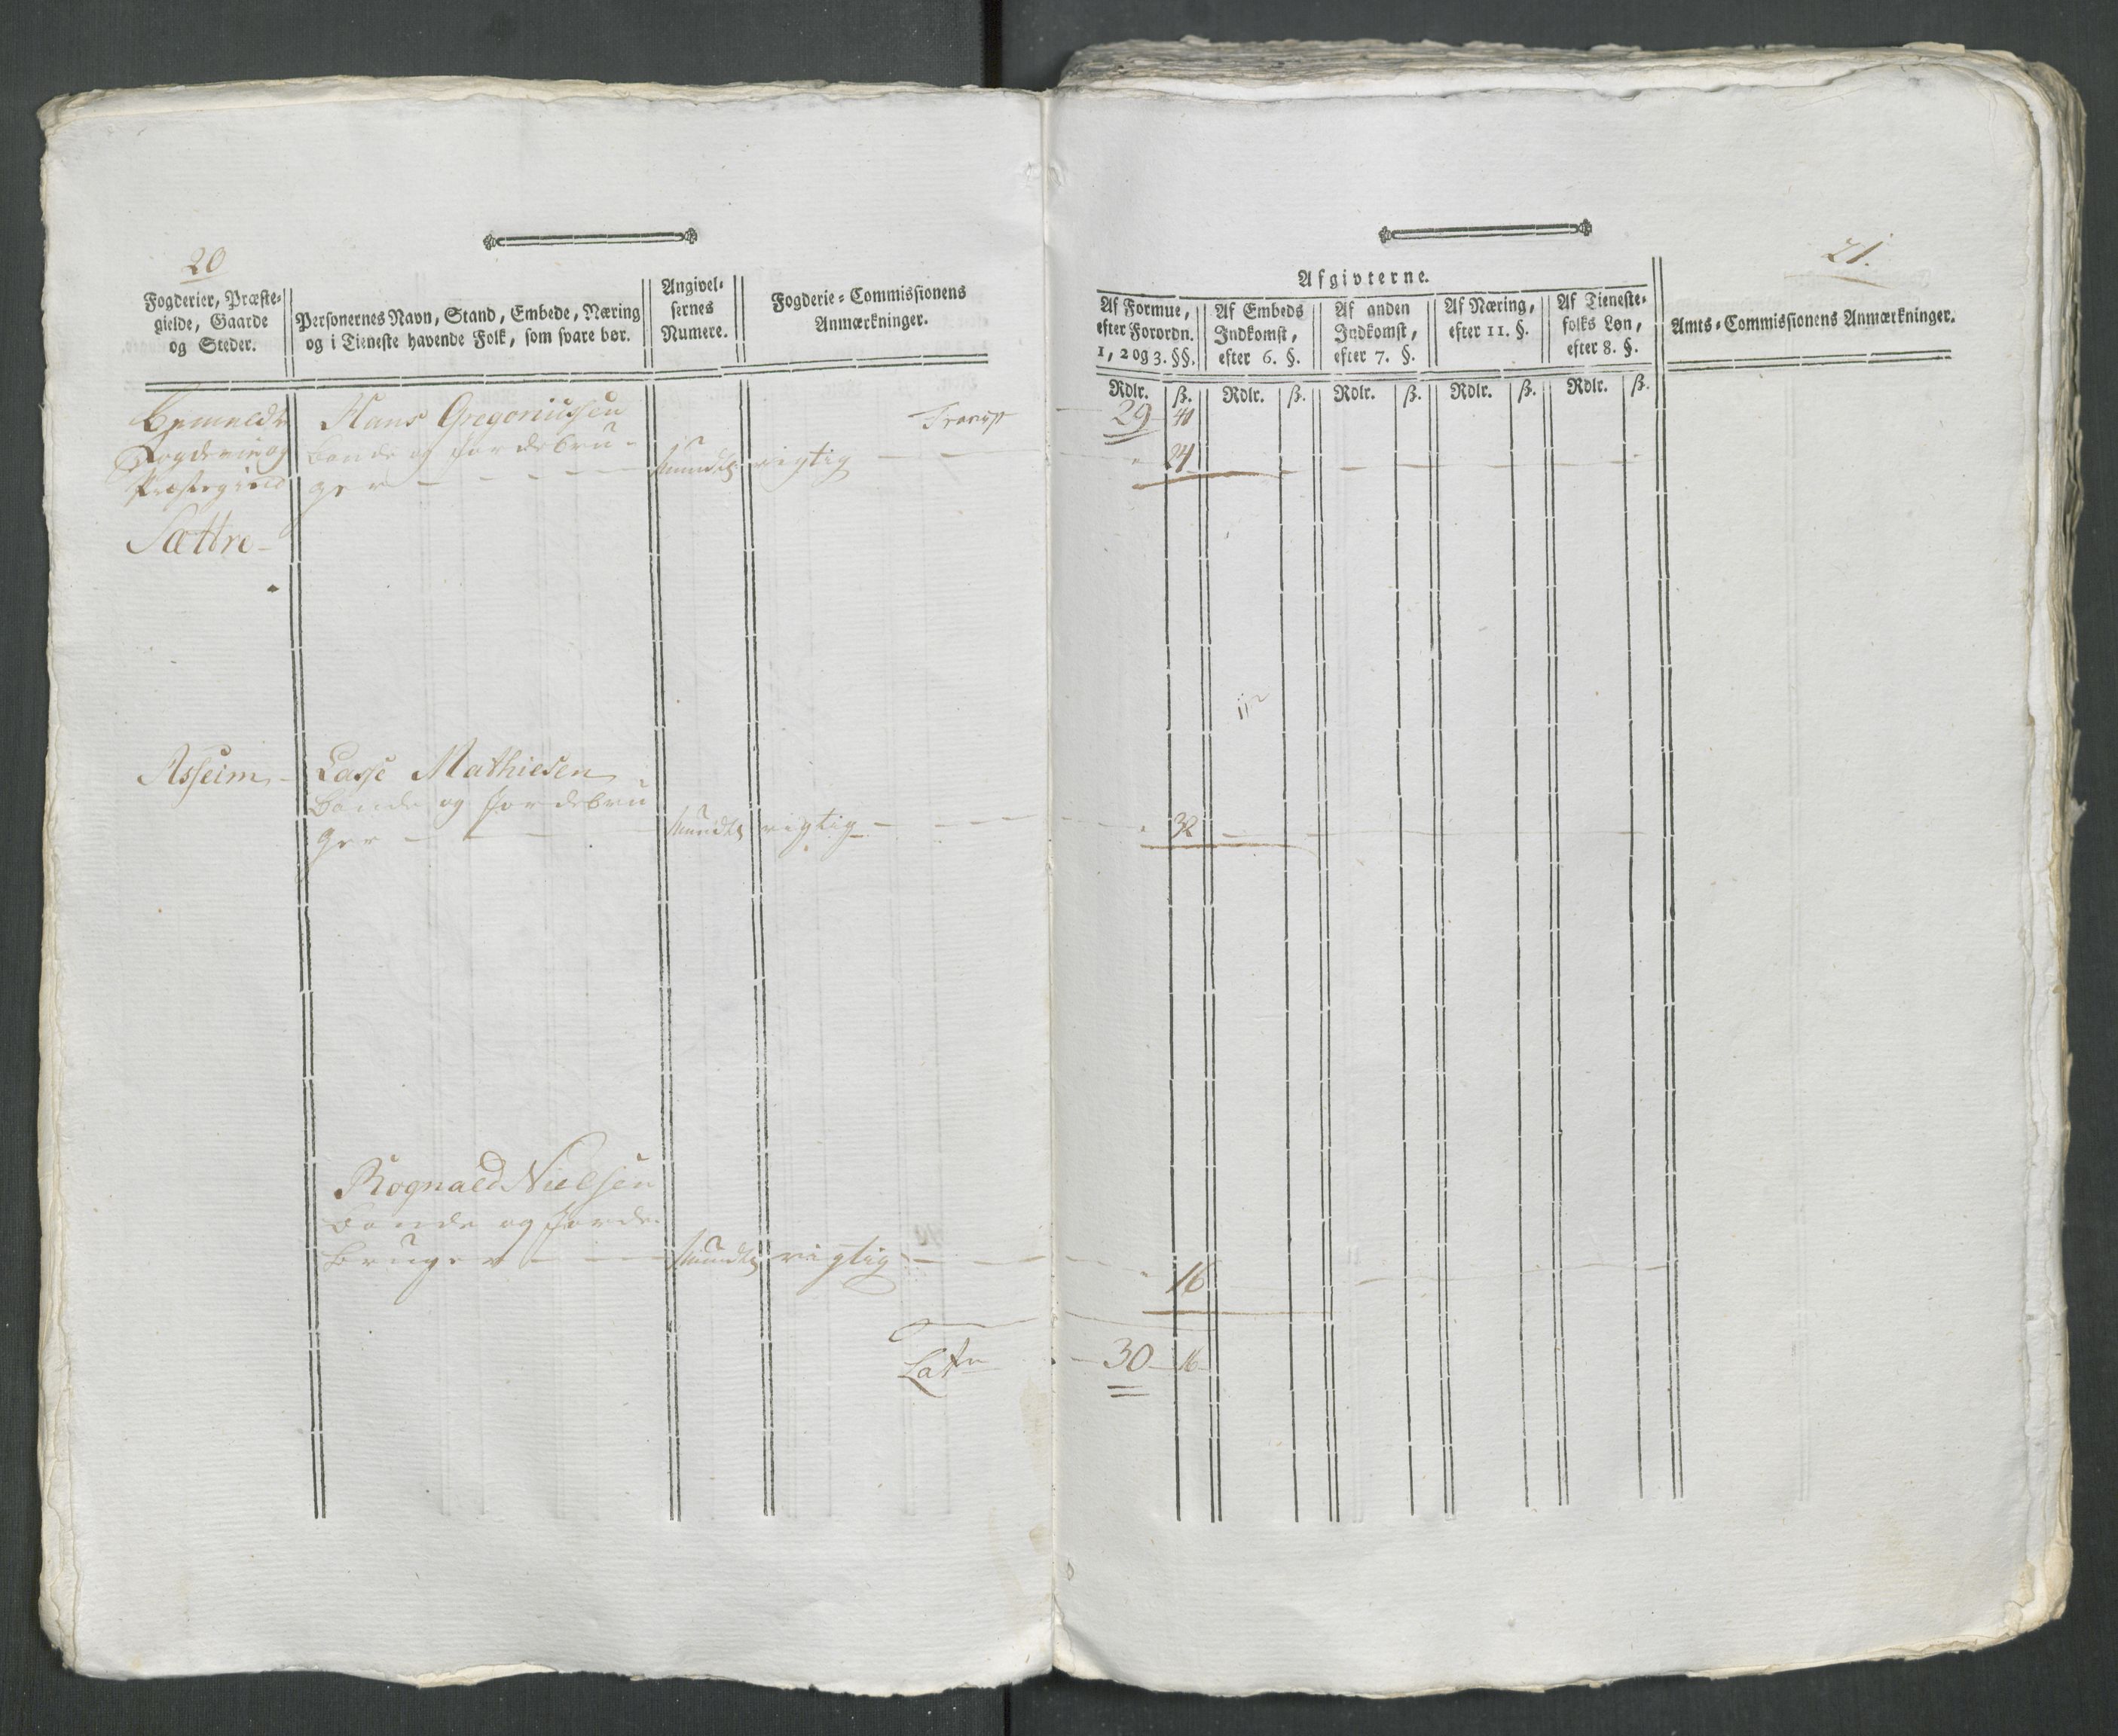 20
Fogderier, Præste-
gielde, Gaarde
og Steder.
Personernes Navn, Stand, Embede, Næring
og i Tieneste havende Folk, som svare bør.
Angivel-
sernes
Numere.
Fogderie-Commissionens
Anmærkninger.
Bemeldte
Fogderie og
Præstegield
Sættre -
Hans Gregoriussen
bonde og jordebru-
ger - - - -
mundtl
rigtig - -
Transp
Asseim -
Lasse Mathiesen
bonde og jordebru
ger - - -
mundtl
rigtig - - -
Rognald Nielsen
bonde og jorde-
bruger - - -
mundtl
rigtig - - -
Lat
21.
Afgivterne.
Af Formue,
efter Forordn.
1, 2 og 3. §§.
Af Embeds
Indkomst,
efter 6. §.
Af anden
Indkomst,
efter 7. §.
Af Næring,
efter 11. §.
Af Tieneste-
folks Løn,
efter 8. §.
Amts-Commissionens Anmærkninger.
Rdlr. ß. Rdlr. ß. Rdlr. ß. Rdlr. ß. Rdlr. ß.
29 40
24
32
16
30 16